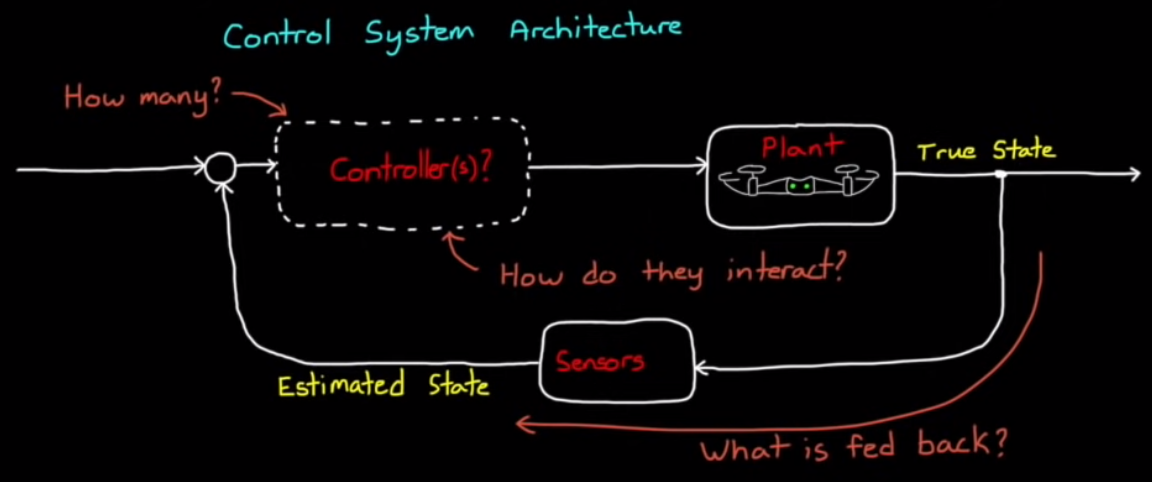 Control System Architecture
How many?
Controller(s)?
Plant
True State
How do they interact?
Sensors
Estimated State
What is fed back?